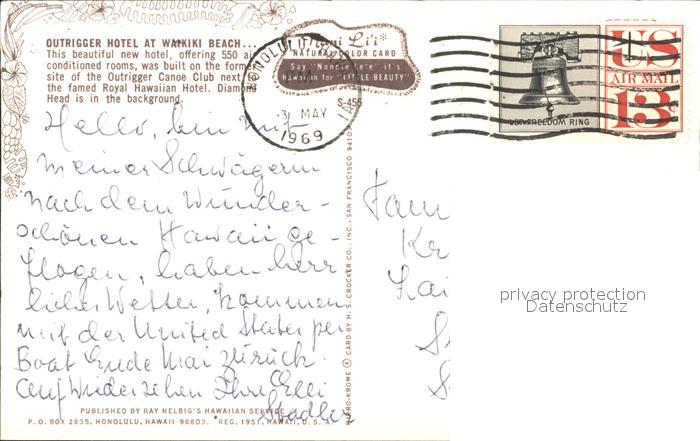 OUTRIGGER HOTEL AT WAIKIKI BEACH...
This beautiful new hotel, offering 550 air
conditioned rooms, was built on the former
site of the Outrigger Canoe Club next to
the famed Royal Hawaiian Hotel. Diamond
Head is in the background.
Nani Li'i*
NATURAL COLOR CARD
Say "Nonnie Lee" it's
Hawaiian for "LITTLE BEAUTY"
S-455
HONOLULU
31 MAY
1969
LET FREEDOM RING
US
AIR MAIL
13c
Hello, bin mit
meiner Schwägerin
nach dem wunder-
schönen Hawaii ge-
flogen, haben herr
liches Wetter, kommen
mit der United States per
Boat Ende Mai zurück.
Auf Wiedersehen Ihre Elli
Stadler
Fam
Kr
Lai
MIRRO-KROME ® CARD BY H. S. CROCKER CO., INC., SAN FRANCISCO 9410
PUBLISHED BY RAY HELBIG'S HAWAIIAN SERVICE
P. O. BOX 2835, HONOLULU, HAWAII 96803. REG. 1951, HAWAII, U. S. A.
privacy protection
Datenschutz